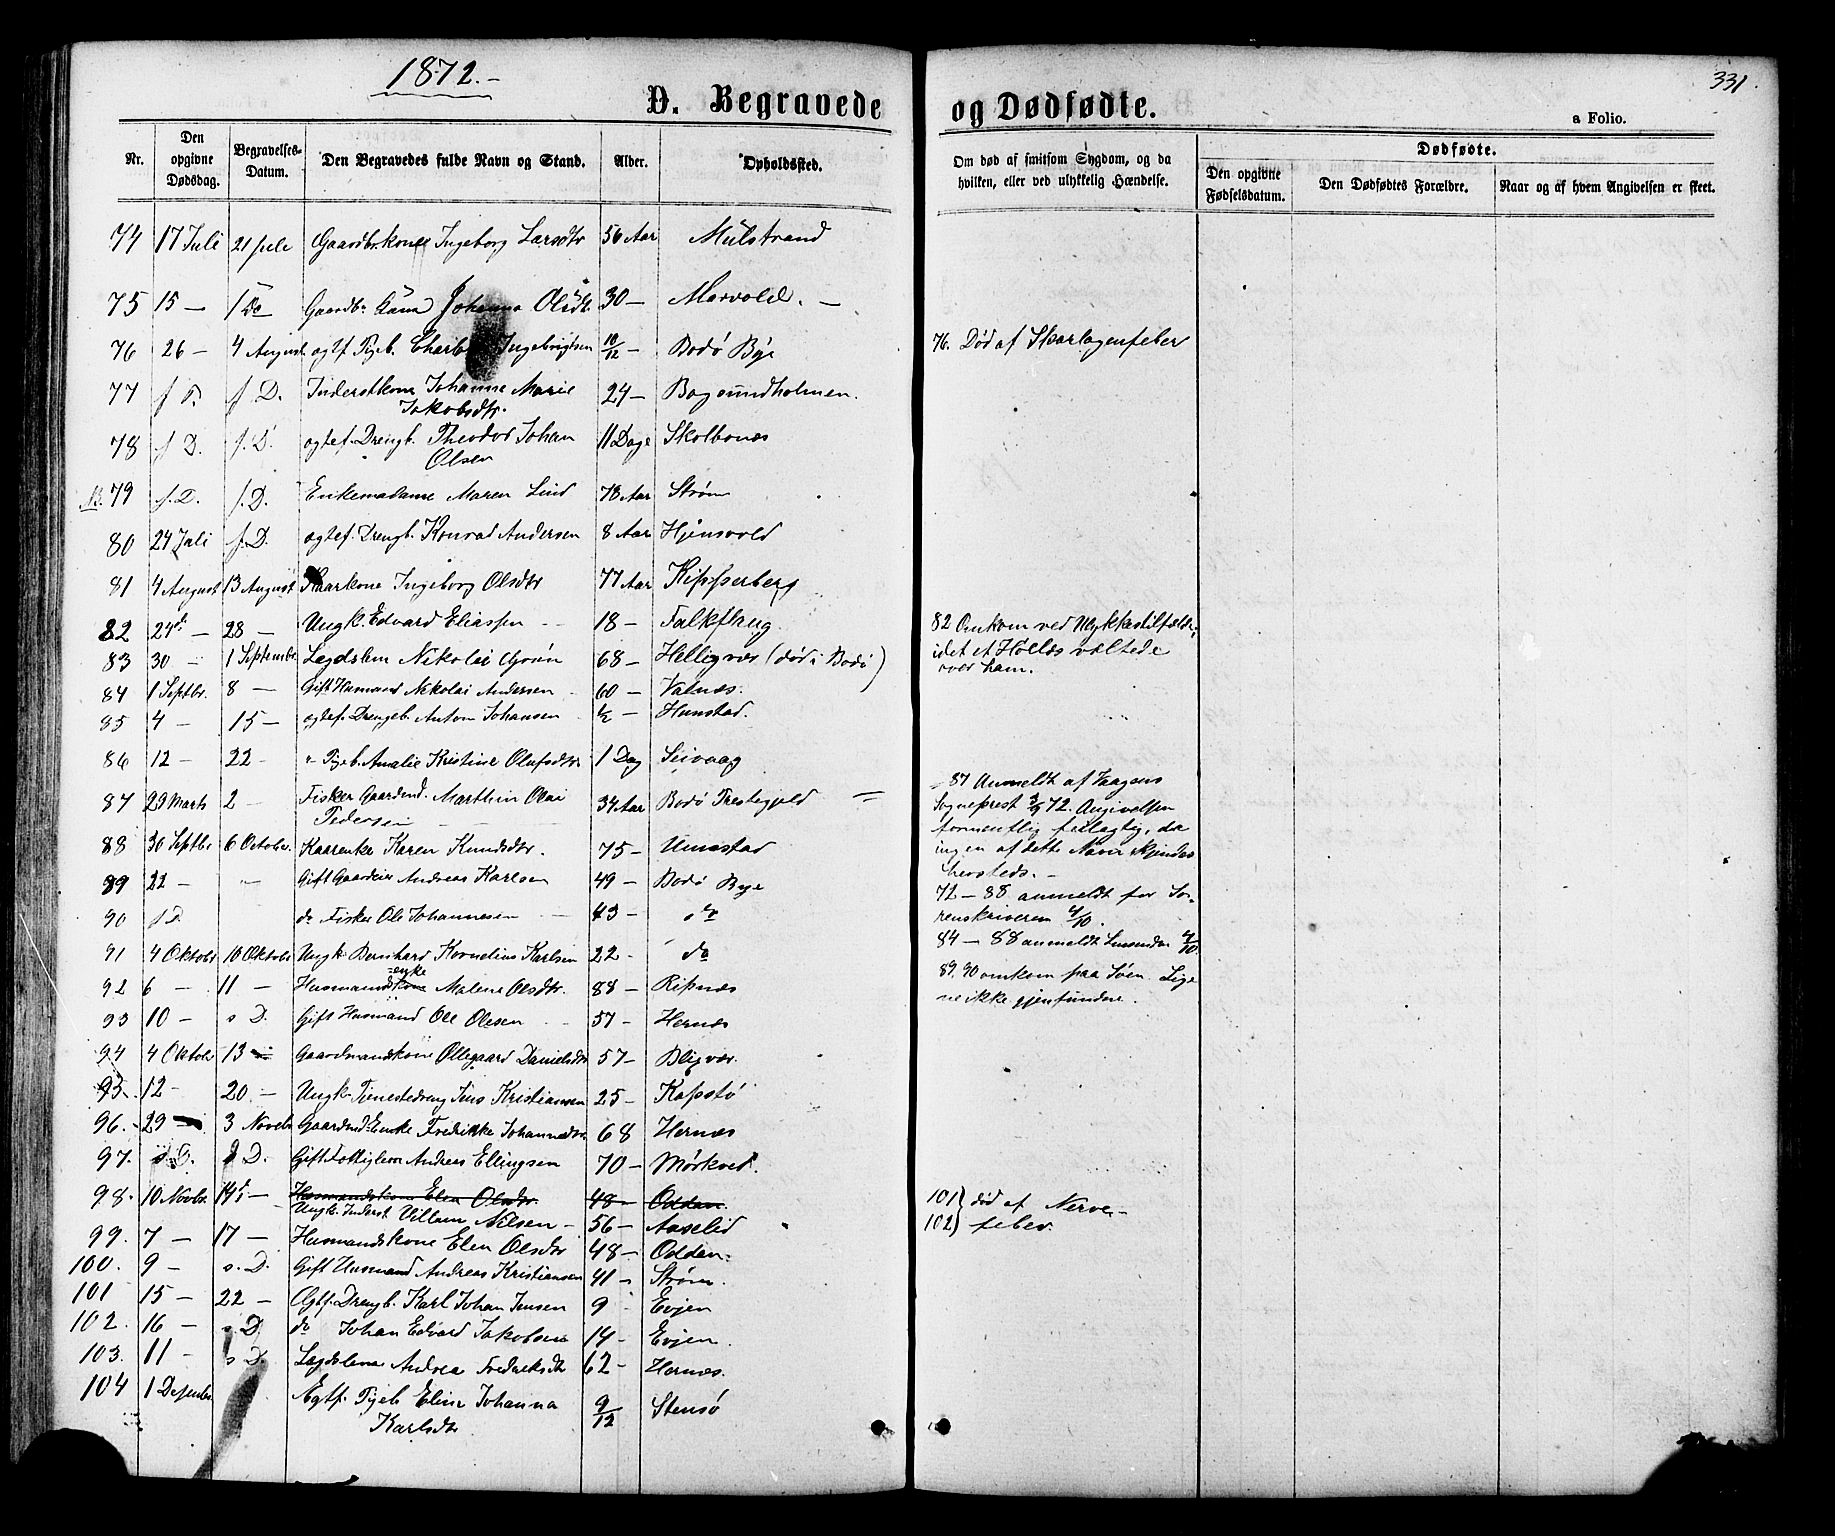 1872.-
331.
D. Begravede og Dødfødte.
a Folio.
Nr.
Den opgivne Dødsdag.
Begravelses-Datum.
Den Begravedes fulde Navn og Stand.
Alder.
Opholdssted.
Om død af smitsom Sygdom, og da hvilken, eller ved ulykkelig Hændelse.
Dødfødte.
Den opgivne Fødselsdatum.
Den Dødfødtes Forældre.
Naar og af hvem Angivelsen er skeet.
74 17 Juli 21 Juli Gaardbr.kone Ingeborg Larsdtr 56 Aar Mulstrand
75 15 — Do Gaardbr. Johanna Olsdtr 30 — Marvold. —
76 26 — 4 August ogtf Pigeb. Ingebrigtsen 10/12 — Bodø Bye
77 s. D. s. D. Inderstkone Johanne Marie 24 — Bagsundholmen.
Jakobsdtr.
78 s. D. s. D. ogtef. Drengb. Theodor Johan 11 Dage Skolbones
Olsen
N. 79 s. D. s. D. Enkemadame Maren Lind 78 Aar Strøm
80 24 Juli s. D. ogtef. Drengb. Konrad Andersen 8 Aar Hjensvold
81 4 August 13 August Kaarkone Ingeborg Olsdtr 77 Aar Kipsserberg
82 24de — 28 — Ungk. Edvard Eliassen — 18 — Falkflaug
83 30 — 1 Septembr. Legdslem Nikolai Grøn 68 — Helligvær (død i Bodø)
84 1 Septbr. 8 — Gift Husmand Nikolai Andersen 60 — Vatnæs.
85 4 — 15 — ogtef. Drengeb. Anton Johansen 1/2 — Hunstad.
86 12 — 22 — " Pigeb. Amalie Kristine Olufsdtr 1 Dag Seivaag
87 29 Marts 2 — Fisker Gaardmd. Marthin Olai 34 Aar Bodø Prestegjeld —
Pedersen
88 30 Septbr 6 October. Kaarenke Karen Knudsdtr. 75 — Unnstad
89 22 — " Gift Gaardeier Andreas Karlsen 49 — Bodø Bye
90 s D. do Fisker Ole Johannesen 43 — do
91 4 Oktobr 10 Oktobr Ungk. Bernhard Kornelius Karlsen 22 — do
92 6 — 11 — Husmandskone enke Malene Olsdtr. 88 — Ripnæs
93 10 — s D. Gift Husmand Ole Olesen 57 — Hernæs
94 4 Oktobr 13 — Gaardmandskone Ollegaard Danielsdtr 57 — Bligvær.
95. 12 — 20 — Ungk. Tjenestedreng Jens Kristiansen 25 — Kopstø
96. 29 — 3 Novebr Gaardmd.Enke Fredrikke Johannesdtr 68 Hernæs
97. s D. s D. Gift Andreas Ellingsen 70 — Mørkved.
98. 10 Novbr. 14de — Husmandskone Elen Olsdtr. 48 — Oddan.
Ungk. Inderst Villum Nilsen — 56 — Aaselid
99. 7 — 17 — Husmandskone Elen Olsdtr 48 — Oddan.
100. 9 — s. D. Gift Husmand Andreas Kristiansen 41 — Strøm.
101 15 — 22 — Ogtf. Drengb. Karl Johan Jensen 9 Evjen
102. 16 — s D. do Johan Edvard Jakobsen 14 — Evjen.
103. 11 — s D. Lægdslem Andrea Frederiksdtr 62 — Hernæs.
104 1 Desember Egtf. Pigeb Eline Johanna 9/12 Stensø
Karlsdtr
76. Død af Skarlagenfeber
82 Omkom ved Ulykkestilfælde,
idet et Hølæs væltede
over ham.
87 Anmeldt af Vaagens
Sogneprest 2/9 72. Angivelsen
formentlig feilagtig, da
ingen af dette Navn kjendes
hersteds. —
72 — 88 anmeldt for So-
renskriveren 4/10.
84 — 88 anmeldt Lensmdn 4/10.
89. 90 omkom paa Søen. Lige
ne ikke gjenfundne.
101 } død af Nerve-
102 } feber.